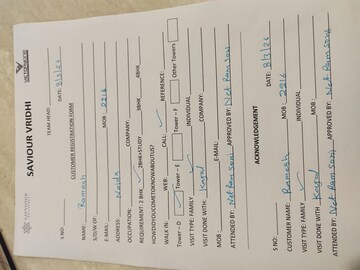 SAVIOUR
SAVIOUR VRIDHI
CUSTOMER REGISTRATION FORM
S NO. TEAM HEAD: DATE: 8/3/26
NAME: Ramesh
S/D/W OF:
E-MAIL: MOB: 0216
ADDRESS: Noida
OCCUPATION: COMPANY:
REQUIREMENT: 2 BHK 2BHK+STUDY 3BHK 4BHK
HOW DID YOU COME TO KNOW ABOUT US?
WALK IN: WEB: CALL: REFERENCE:
Tower – D Tower – E Tower – F Other Towers
VISIT TYPE: FAMILY INDIVIDUAL
VISIT DONE WITH: COMPANY:
MOB: E-MAIL:
ATTENDED BY: Net Ram Soni APPROVED BY: Net Ram Soni
ACKNOWLEDGMENT
S NO: DATE: 8/3/26
CUSTOMER NAME: Ramesh MOB: 2916
VISIT TYPE: FAMILY INDIVIDUAL
VISIT DONE WITH MOB:
ATTENDED BY: Net Ram Soni APPROVED BY: Net Ram Soni